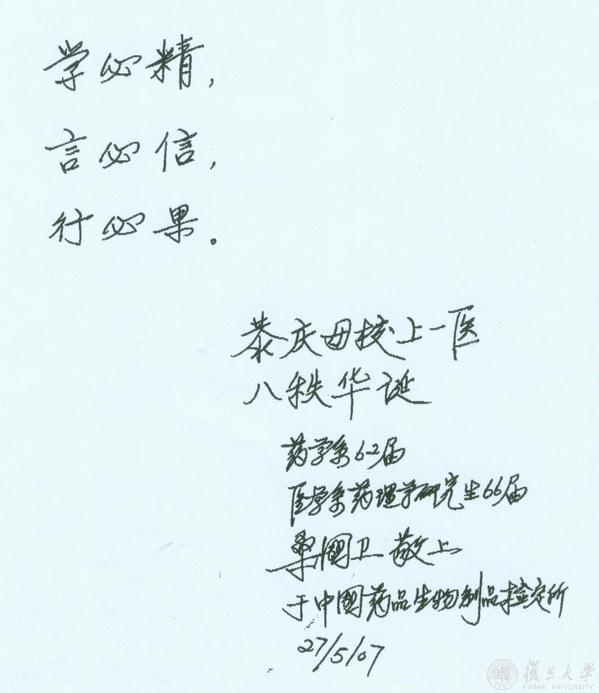 学必精，
言必信，
行必果。
恭庆母校上一医
八秩华诞
药学系62届
医学系药理学研究生66届
桑國卫 敬上
于中國药品生物制品检定所
27/5/07
復旦大學
FUDAN UNIVERSITY